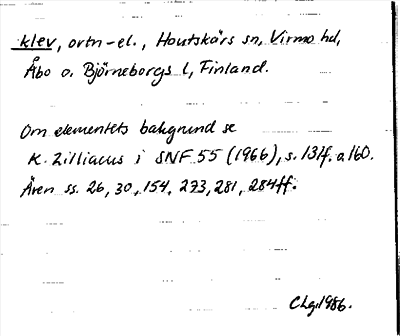 klev, ortn-el., Houtskärs sn, Virmo hd,
Åbo o. Björneborgs l, Finland.
Om elementets bakgrund se
K. Zilliacus i SNF 55 (1966), s. 131f. o. 160.
Även ss. 26, 30, 154, 273, 281, 284ff.
CLg. 1986.